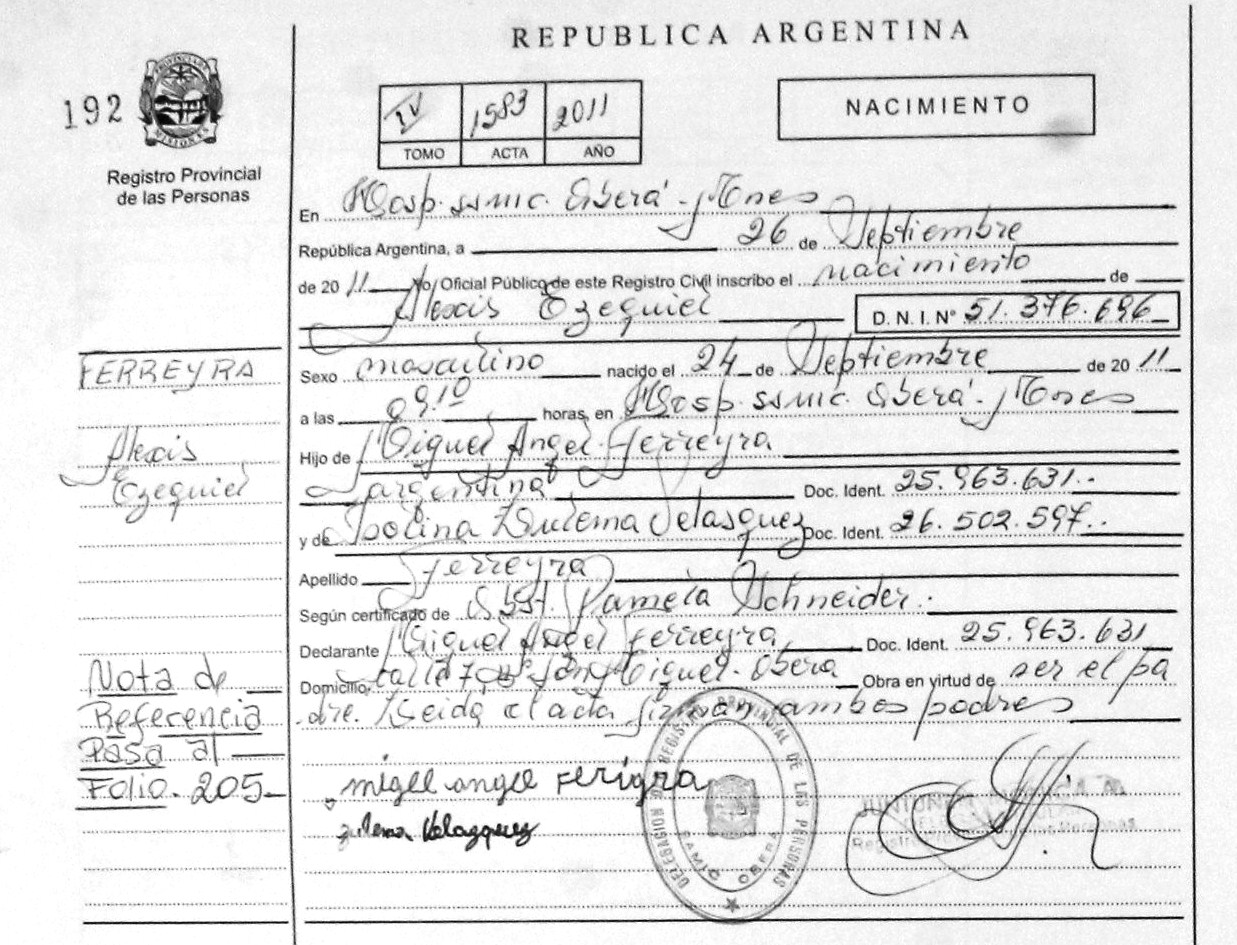 REPUBLICA ARGENTINA
192
PROVINCIA DE MISIONES
Registro Provincial
de las Personas
IV 1583 2011
TOMO ACTA AÑO
NACIMIENTO
En Hosp. ssmic. Oberá - Mnes
República Argentina, a 26 de Septiembre
de 20 11 Yo, Oficial Público de este Registro Civil inscribo el nacimiento de
Alexis Ezequiel D. N. I. Nº 51.376.696
FERREYRA
Alexis
Ezequiel
Sexo masculino nacido el 24 de Septiembre de 20 11
a las 09.10 horas, en Hosp. ssmic. Oberá - Mnes
Hijo de Miguel Angel Ferreyra
argentina Doc. Ident. 25.963.631..
y de Isolina Zulema Velasquez Doc. Ident. 26.502.597..
Apellido Ferreyra
Según certificado de Obst. Pamela Schneider.
Declarante Miguel Angel Ferreyra Doc. Ident. 25.963.631
Domicilio, San Miguel - Oberá Obra en virtud de ser el pa
dre. Leida el acta firman ambos padres
Nota de
Referencia
Pasa al
Folio. 205
migel angel Ferigra
zulema Velazquez
DELEGACION DE REGISTRO PROVINCIAL DE LAS PERSONAS
OBERA
Registro Personas